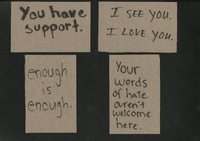 You have
support.
I SEE YOU.
I LOVE YOU.
enough
is
enough.
Your
words
of hate
aren't
welcome
here.